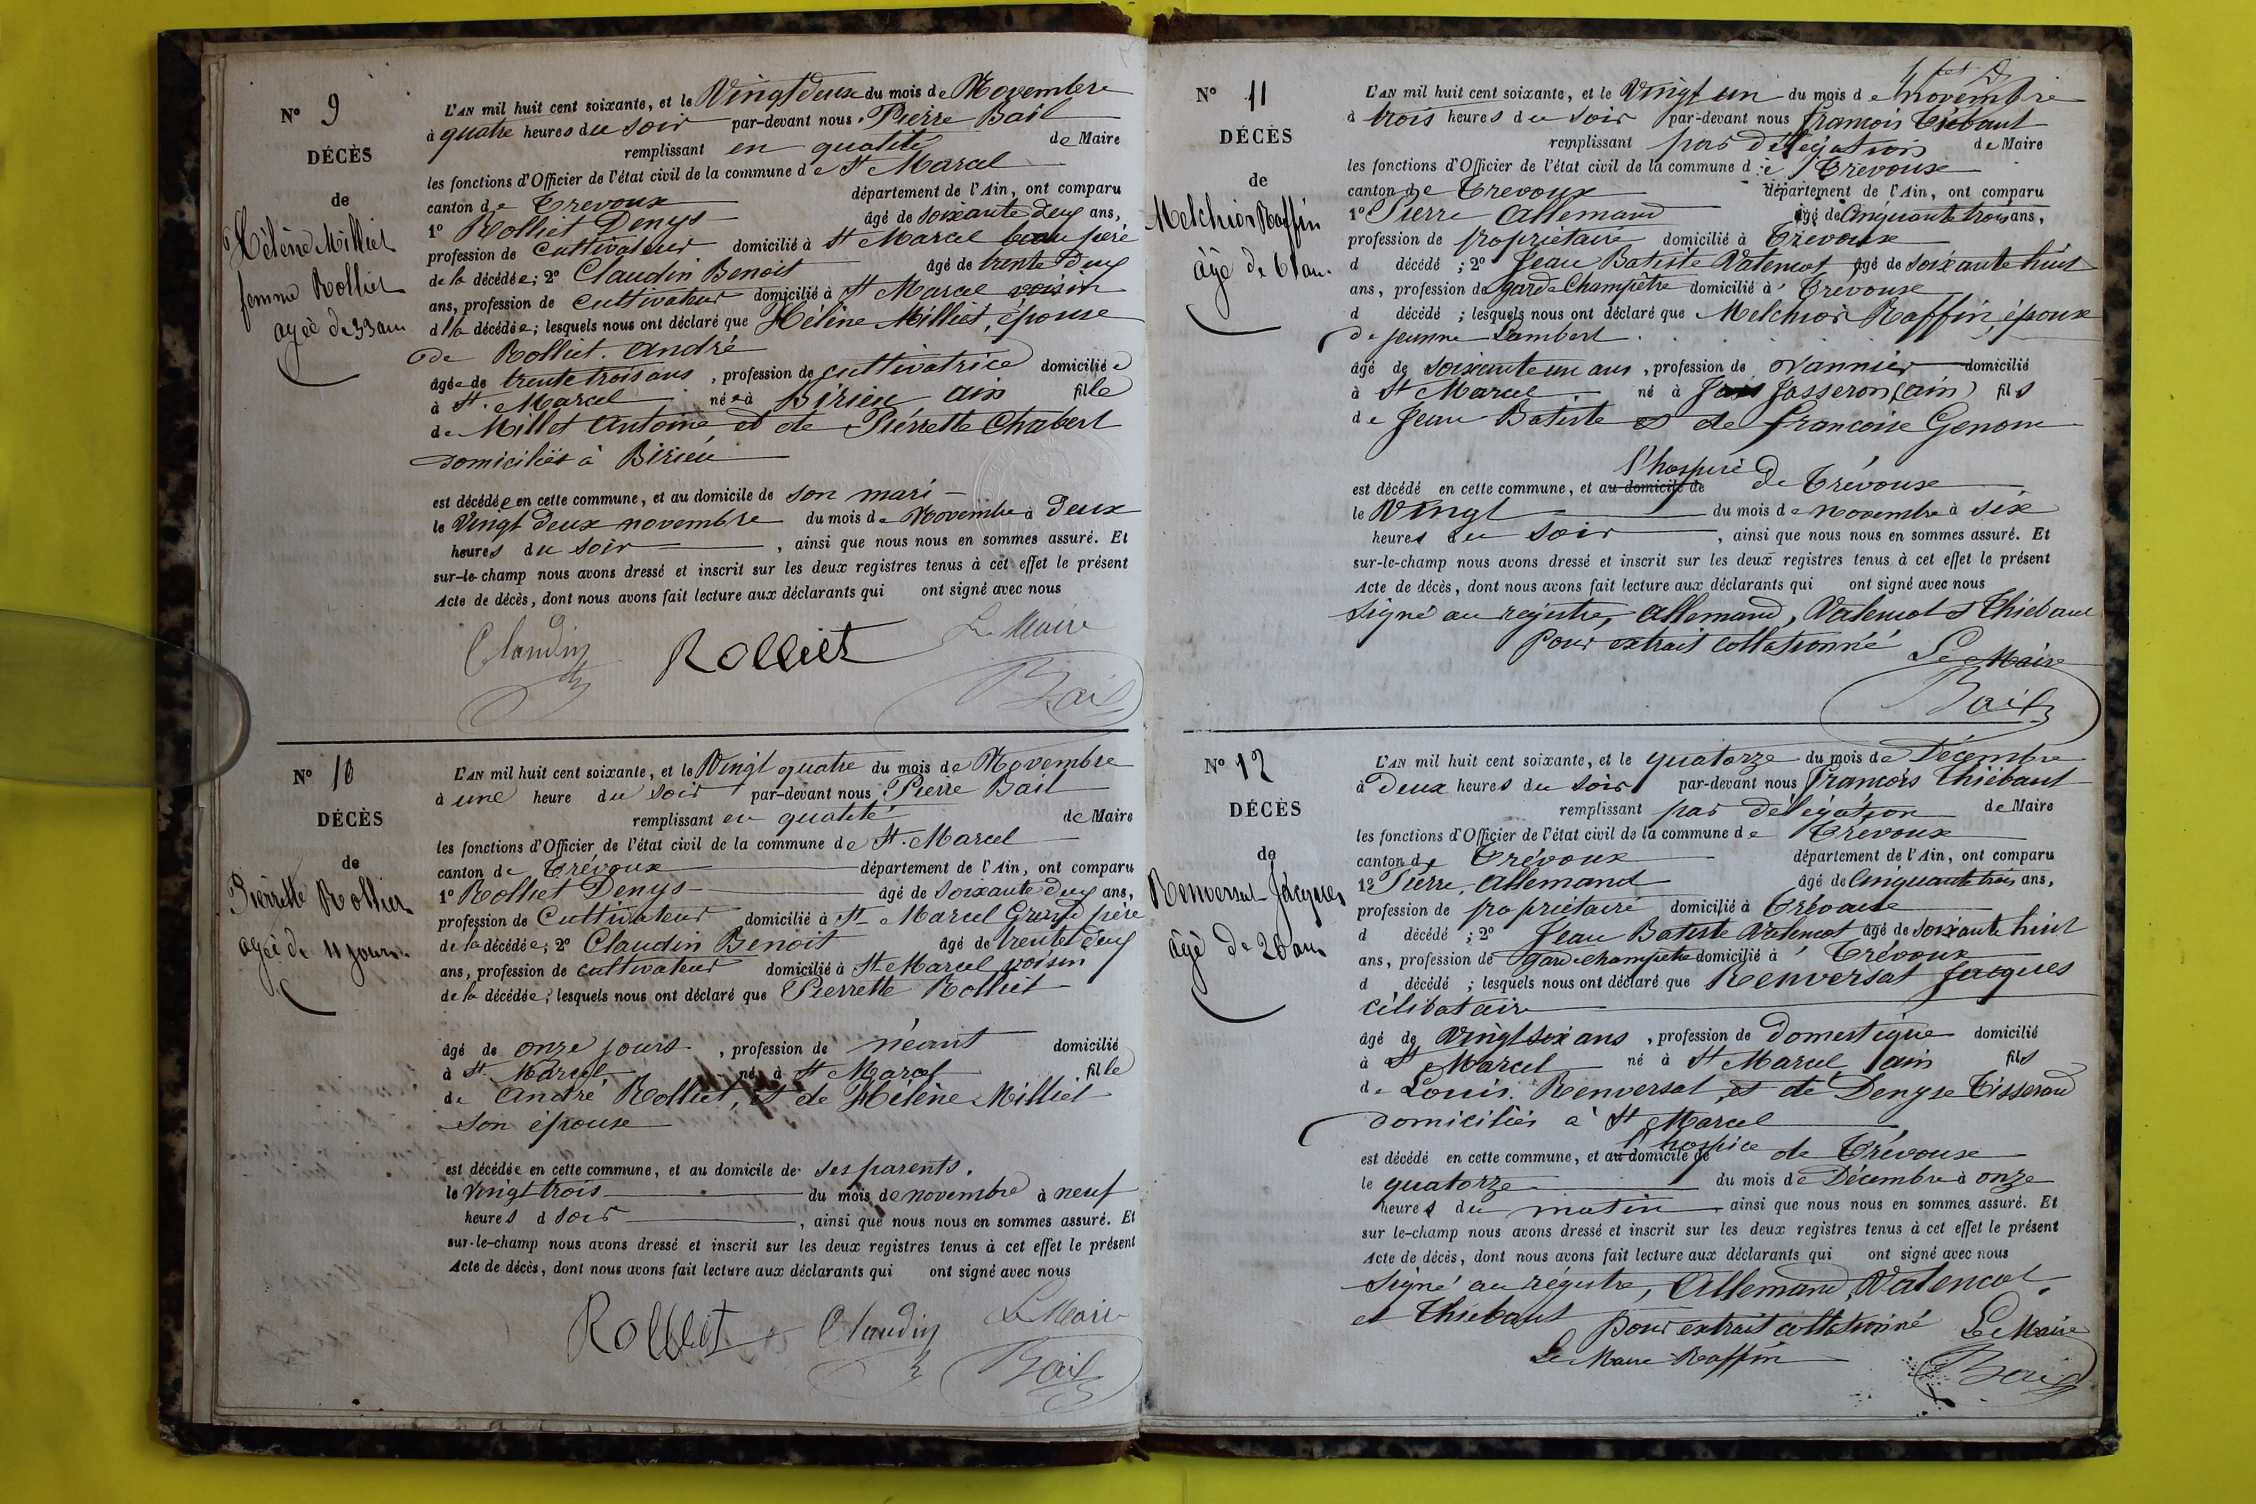 N° 9
DÉCÈS
de
Hélène Milliet
femme Rolliet
agée de 33 ans
L'AN mil huit cent soixante, et le Vingt deux du mois de Novembre
à quatre heures du soir par-devant nous Pierre Bail
remplissant en qualité de Maire
les fonctions d'Officier de l'état civil de la commune de St Marcel
canton de Trevoux département de l'Ain, ont comparu
1° Rolliet Denys âgé de soixante deux ans,
profession de cultivateur domicilié à St Marcel beau père
de la décédée; 2° Claudin Benoit âgé de trente deux
ans, profession de cultivateur domicilié à St Marcel voisin
d la décédée; lesquels nous ont déclaré que Hélène Milliet, épouse
de Rolliet André
âgée de trente trois ans, profession de cultivatrice domiciliée
à St. Marcel née à Birieu ain fille
de Millet Antoine et de Piérrette Chabert
domiciliés à Birieu
est décédée en cette commune, et au domicile de son mari
le Vingt deux novembre du mois de Novembre à Deux
heures du soir, ainsi que nous nous en sommes assuré. Et
sur-le-champ nous avons dressé et inscrit sur les deux registres tenus à cet effet le présent
Acte de décès, dont nous avons fait lecture aux déclarants qui ont signé avec nous
Le Maire
Claudin Rolliet
Bail
N° 10
DÉCÈS
de
Pierrette Rolliet
agée de 11 jours
L'AN mil huit cent soixante, et le Vingt quatre du mois de Novembre
à une heure du soir par-devant nous Pierre Bail
remplissant en qualité de Maire
les fonctions d'Officier de l'état civil de la commune de St. Marcel
canton de Trévoux département de l'Ain, ont comparu
1° Rolliet Denys âgé de soixante deux ans,
profession de Cultivateur domicilié à St Marcel Grand père
de la décédée; 2° Claudin Benoit âgé de trente deux
ans, profession de cultivateur domicilié à St Marcel voisin
de la décédée; lesquels nous ont déclaré que Pierrette Rolliet
âgé de onze jours, profession de néant domicilié
à St Marcel né à St Marcel fille
de André Rolliet, et de Hélène Milliet
son épouse
est décédée en cette commune, et au domicile de ses parents.
le vingt trois du mois de novembre à neuf
heures d soir, ainsi que nous nous en sommes assuré. Et
sur-le-champ nous avons dressé et inscrit sur les deux registres tenus à cet effet le présent
Acte de décès, dont nous avons fait lecture aux déclarants qui ont signé avec nous
Rolliet Claudin Le Maire
Bail
N° 11
DÉCÈS
de
Melchior Raffin
âgé de 61 an.
L'AN mil huit cent soixante, et le Vingt un du mois de novembre
à trois heures du soir par-devant nous françois Thiébaut
remplissant par délégation de Maire
les fonctions d'Officier de l'état civil de la commune de Trévoux
canton de Trevoux département de l'Ain, ont comparu
1° Pierre Allemand âgé de Cinquante trois ans,
profession de propriétaire domicilié à Trévoux
d décédé; 2° Jean Batiste Valencot âgé de soixante huit
ans, profession de garde Champêtre domicilié à Trévoux
d décédé; lesquels nous ont déclaré que Melchior Raffin, époux
de jeanne Lambert
âgé de soixante un ans, profession de vannier domicilié
à St Marcel né à Jasseron (ain) fils
de Jean Batiste et de francoise Genom
l'hospice
est décédé en cette commune, et au domicile de de Trévoux
le Vingt du mois de novembre à six
heures du soir, ainsi que nous nous en sommes assuré. Et
sur-le-champ nous avons dressé et inscrit sur les deux registres tenus à cet effet le présent
Acte de décès, dont nous avons fait lecture aux déclarants qui ont signé avec nous
signé au registre, allemand, Valencot et Thiebaut
Pour extrait collationné
Le Maire
Bail
N° 12
DÉCÈS
de
Renversat Jacques
âgé de 26 ans
L'AN mil huit cent soixante, et le quatorze du mois de Décembre
à Deux heures du soir par-devant nous françois Thiébaut
remplissant par délégation de Maire
les fonctions d'Officier de l'état civil de la commune de Trevoux
canton de Trévoux département de l'Ain, ont comparu
1° Pierre Allemand âgé de Cinquante trois ans,
profession de propriétaire domicilié à Trévoux
d décédé; 2° Jean Batiste Valencot âgé de soixante huit
ans, profession de garde champêtre domicilié à Trévoux
d décédé; lesquels nous ont déclaré que Renversat Jacques
célibataire
âgé de Vingt six ans, profession de Domestique domicilié
à St Marcel né à St Marcel ain fils
de Louis Renversat, et de Denyse Tisserand
domiciliés à St Marcel
l'hospice
est décédé en cette commune, et au domicile de de Trévoux
le quatorze du mois de Décembre à onze
heures du matin ainsi que nous nous en sommes assuré. Et
sur le-champ nous avons dressé et inscrit sur les deux registres tenus à cet effet le présent
Acte de décès, dont nous avons fait lecture aux déclarants qui ont signé avec nous
signé au régistre, Allemand, Valencot,
et Thiebaut pour extrait collationné Le Maire
Le Maire Raffin Bail